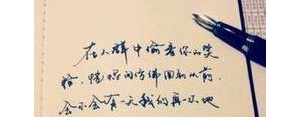 在人群中偷看你的笑
脸，恍惚间仿佛回到从前，
会不会有一天我们再一次地